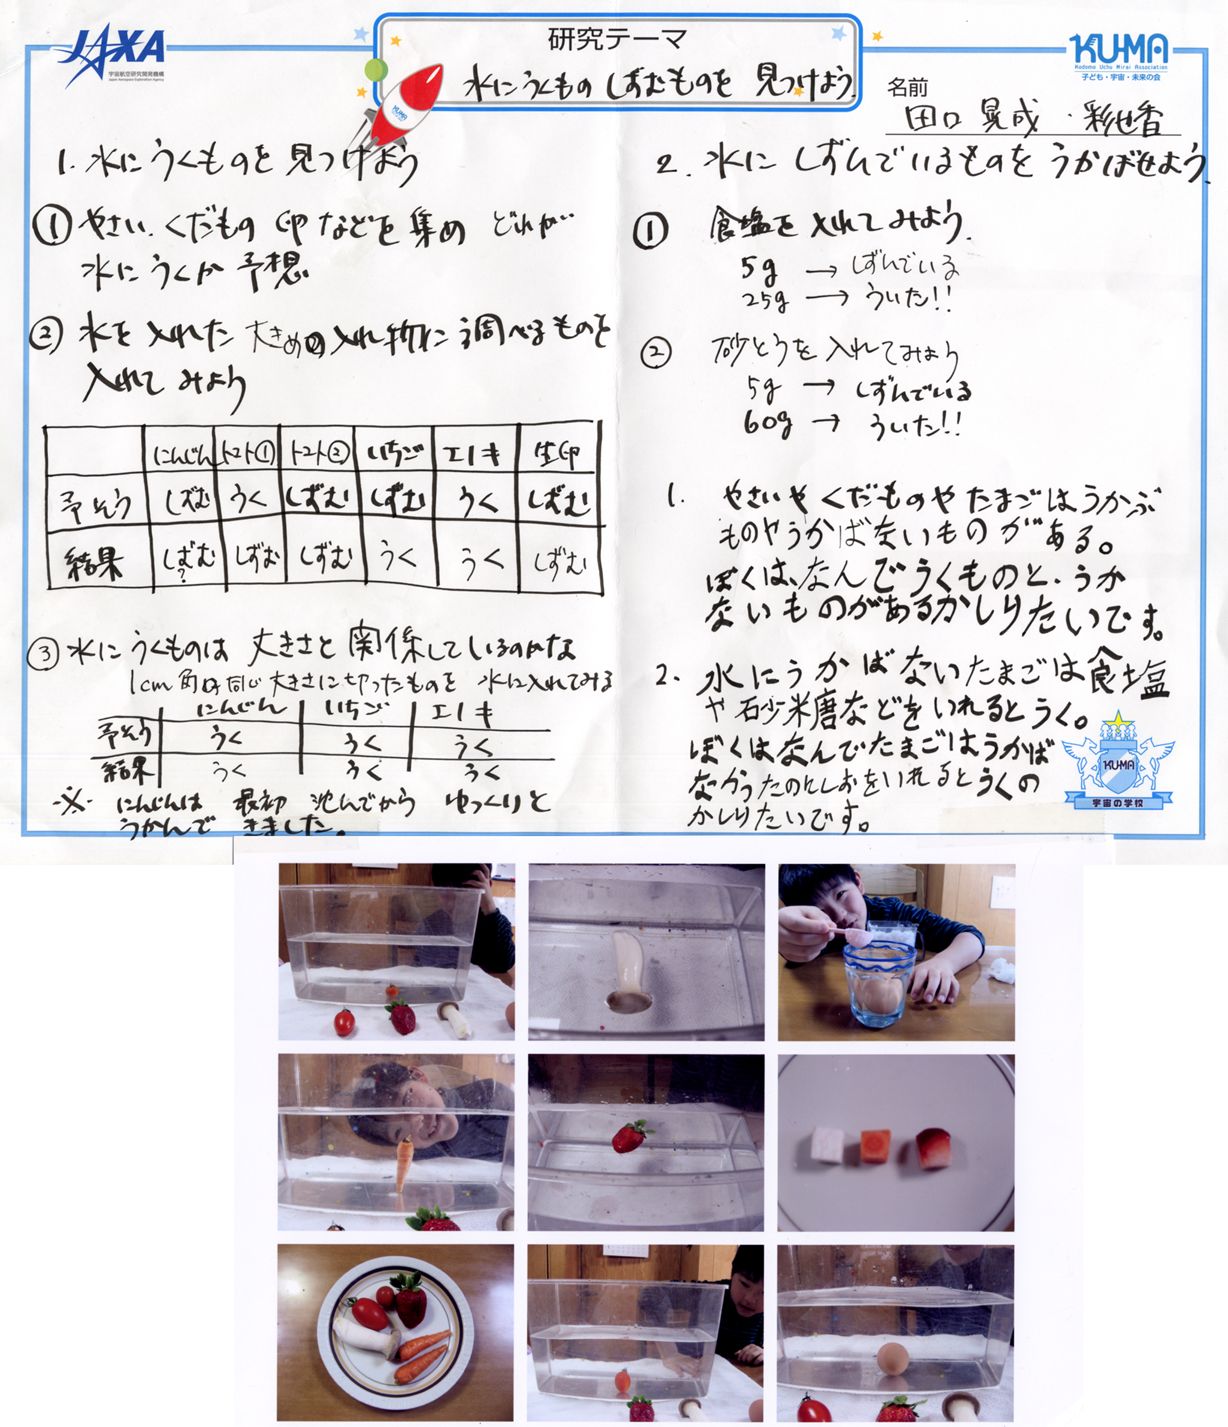 JAXA
宇宙航空研究開発機構
Japan Aerospace Exploration Agency
研究テーマ
水にうくもの しずむものを 見つけよう.
KUMA
Kodomo Uchu Mirai Association
子ども・宇宙・未来の会
名前
田口 晃成 ・彩也香
KUMA
1. 水に うくものを 見つけよう
① やさい.くだもの 卵 などを 集め どれが
水に うくか 予想
② 水を 入れた 大きめの 入れ物に 調べるものを
入れて みよう
にんじん トマト① トマト② いちご エリンギ 生卵
予そう しずむ うく しずむ しずむ うく しずむ
結果 しずむ? しずむ しずむ うく うく しずむ
③ 水に うくものは 大きさと 関係しているのかな
1cm 角の 同じ 大きさに 切ったものを 水に入れてみる
にんじん いちご エリンギ
予そう うく うく うく
結果 うく うく うく
※ にんじんは 最初 沈んでから ゆっくりと
うかんで きました。
2. 水に しずんでいるものを うかばせよう.
① 食塩を 入れて みよう.
5g → しずんでいる
25g → ういた!!
② 砂とうを 入れてみよう
5g → しずんでいる
60g → ういた!!
1. やさいや くだものや たまごは うかぶ
ものやうかばないものがある。
ぼくは、なんでうくものと、うか
ないものがあるかしりたいです。
2. 水にうかばないたまごは食塩
や砂糖などをいれるとうく。
ぼくはなんでたまごはうかば
なかったのにしおをいれるとうくの
かしりたいです。
KUMA
宇宙の学校